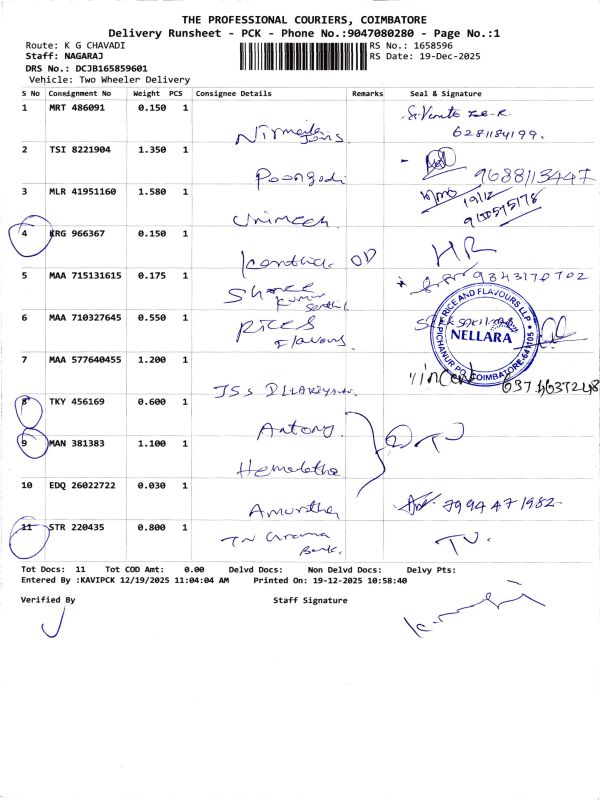 THE PROFESSIONAL COURIERS, COIMBATORE
Delivery Runsheet - PCK - Phone No.:9047080280 - Page No.:1
Route: K G CHAVADI RS No.: 1658596
Staff: NAGARAJ RS Date: 19-Dec-2025
DRS No.: DCJB165859601
Vehicle: Two Wheeler Delivery
S No Consignment No Weight PCS Consignee Details Remarks Seal & Signature
1 MRT 486091 0.150 1
6281184199.
2 TSI 8221904 1.350 1
Poongodi 9688113447
3 MLR 41951160 1.580 1
19/12
4 KRG 966367 0.150 1
OD HR
5 MAA 715131615 0.175 1
Shree Kumar Senthil 9843170702
6 MAA 710327645 0.550 1
Rices Flavours
RICE AND FLAVOURS LLP
NELLARA
PICHANUR PO, COIMBATORE-641105
7 MAA 577640455 1.200 1
Vincent
8 TKY 456169 0.600 1
Antony
9 MAN 381383 1.100 1
Hemalatha
10 EDQ 26022722 0.030 1
Amurtha 7994471982
11 STR 220435 0.800 1
TN Grama Bank.
Tot Docs: 11 Tot COD Amt: 0.00 Delvd Docs: Non Delvd Docs: Delvy Pts:
Entered By :KAVIPCK 12/19/2025 11:04:04 AM Printed On: 19-12-2025 10:58:40
Verified By Staff Signature